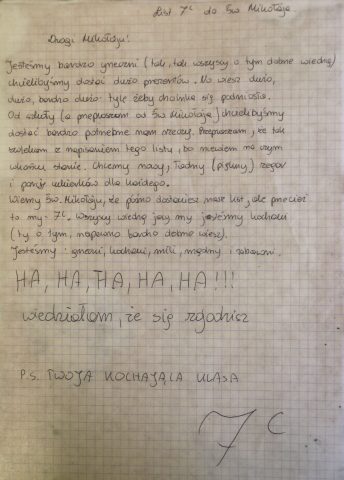 List 7c do Św Mikołaja
Drogi Mikołaju!
Jesteśmy bardzo grzeczni (tak, tak wszyscy o tym dobrze wiedzą)
chcielibyśmy dostać dużo prezentów. No wiesz dużo,
dużo, bardzo dużo: tyle żeby choinka się podniosła.
Od szkoły (a przepraszam od Św Mikołaja) chcielibyśmy
dostać bardzo potrzebne nam rzeczy. Przepraszam, że tak
zwlekam z napisaniem tego listy, bo musiałam na czym
właśnie stanie. Chcemy nowy, ładny (piękny) zegar
i parę cukierków dla każdego.
Wiemy Św. Mikołaju, że późno dostaniesz nasz list, ale przecież
to my - 7c. Wszyscy wiedzą jacy my jesteśmy kochani
(ty o tym, napewno bardzo dobrze wiesz).
Jesteśmy: grzeczni, kochani, mili, mądrzy i zabawni.
HA, HA, HA, HA, HA!!!
wiedziałam, że się zgodzisz
P.S. TWOJA KOCHAJĄCA KLASA
7c